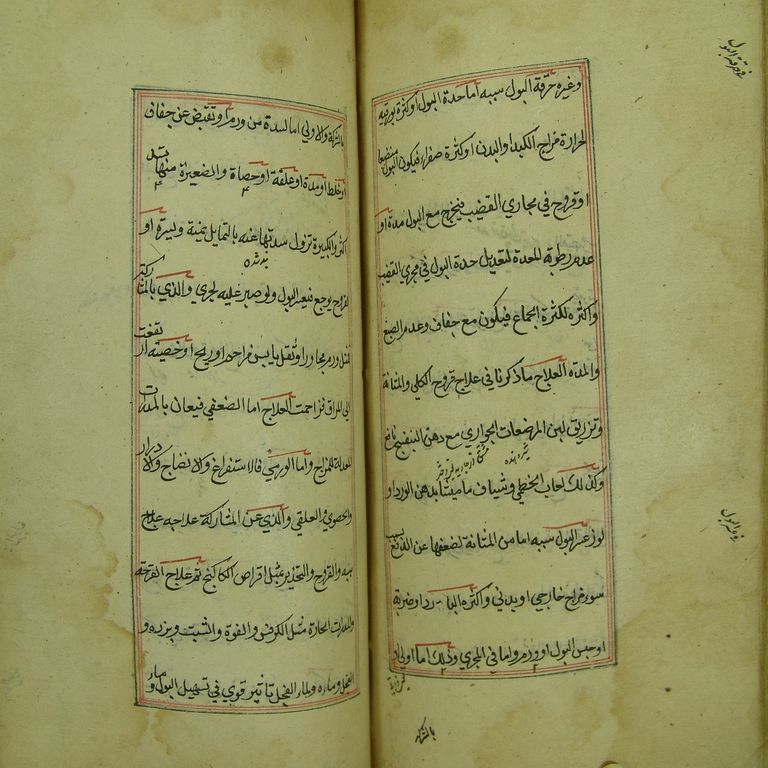 وغيره حرقة البول سببه اما حدة البول او كثرة بورقيه
لحرارة مزاج الكبد او البدن او كثرة صفراء فيكون البول
او قروح في مجاري القضيب فيخرج مع البول مدة او
عدم رطوبة المعدة لتعديل حدة البول في مجرى القضيب
واكثره لكثرة الجماع فيكون مع جفاف وعدم الصبغ
والمده العلاج ما ذكرنا في علاج قروح الكلى والمثانة
وتزريق لبن المرضعات الجواري مع دهن البنفسج نافع
وكذلك لعاب الخطمي وشياف ماميثا بدهن الورد او
لوز عسر البول سببه اما من المثانة لضعفها عن الدفع
سوء مزاج خارجي او بدني واكثره البارد او ضربة
او حبس البول او ورم واما في المجرى وذلك اما اولا او
بالشركة والاولى اما لسدة من ورم او تقبض عن جفاف
او خلط او مدة او علقة او حصاة والصغيرة منها
والكبيرة تزول سدتها عنه بالتمايل يمنة ويسرة او
لقروح يوجع فيعسر البول ولو صبر عليه لجرى والذي
ورم مجاور او ثقل يابس مزاحم او ريح او خصيته ار
الى المراق فزاحمت العلاج اما الضعفي فيعان بالمدرات
المعدلة للمزاج واما الورمي فالاستفراغ والانضاج والا
والحصوي والعلقي والذي عن المشاركة علاجه علاج
والقروح والتخدير بمثل اقراص الكاكنج ثم علاج القرحة
والمدرات الحارة مثل الكرفس والفوة والشبت وبزره و
الفجل وماءه ولماء الفجل تاثير قوي في تسهيل البول وماء
في حرقة البول
عسر البول
بالشركة